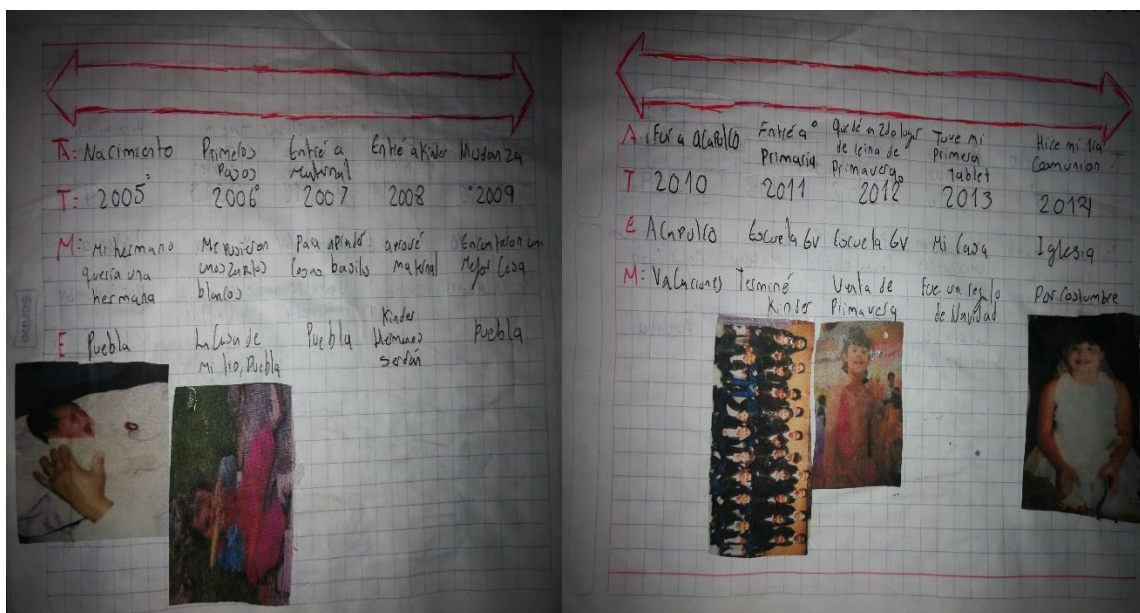 A: Nacimiento Primeros Pasos Entré a Maternal Entré a Kinder Mudanza
T: 2005 2006 2007 2008 2009
M: Mi hermano quería una hermana Me pusieron unos zapatos blancos Para aprender cosas aprové maternal Encontraron una Mejor Casa
E Puebla La Casa de mi tio, Puebla Puebla Kinder Hermanos Serdán Puebla
A Fui a ACAPULCO Entré a Primaria Quedé en 2do lugar de reina de Primavera Tuve mi Primera tablet Hice mi 1ra Comunion
T 2010 2011 2012 2013 2014
E ACAPULCO Escuela GV Escuela GV Mi Casa Iglesia
M: Vacaciones Terminé Kinder Venta de Primavera Fue un regalo de Navidad Por Costumbre